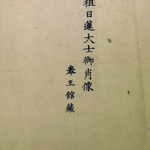 祖日蓮大士御肖像
奉王館藏